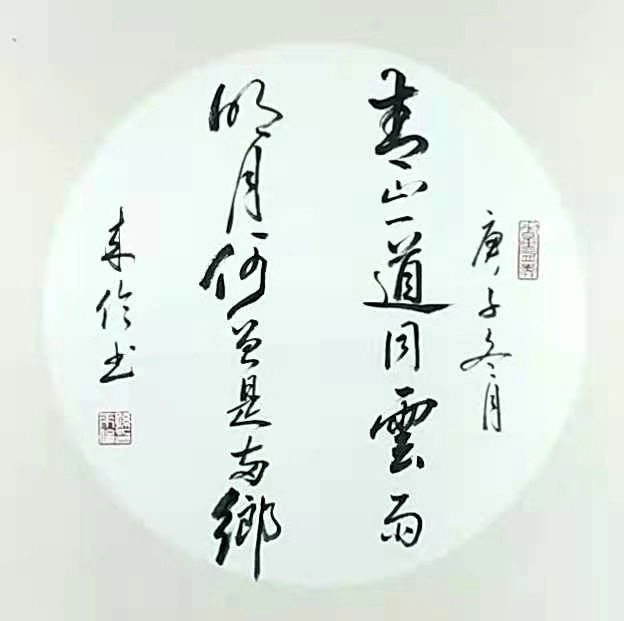 庚子冬月
青山一道同雲雨
明月何曾是兩鄉
来书